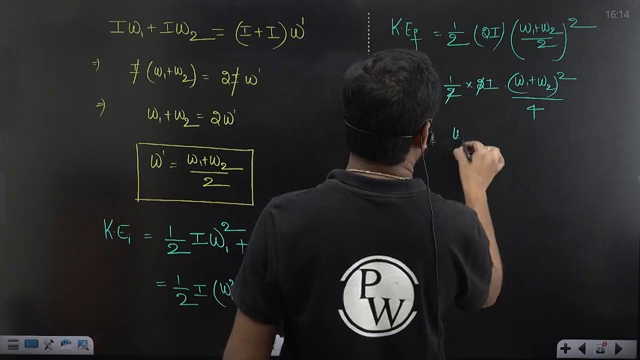 16:14
Iω₁ + Iω₂ = (I+I)ω'
⇒ I(ω₁+ω₂) = 2Iω'
⇒ ω₁+ω₂ = 2ω'
ω' = (ω₁+ω₂)/2
K·Eᵢ = 1/2 Iω₁² +
= 1/2 I(ω
K·E_f = 1/2 (2I) ((ω₁+ω₂)/2)²
1/2 × 2I (ω₁+ω₂)²/4
P
W